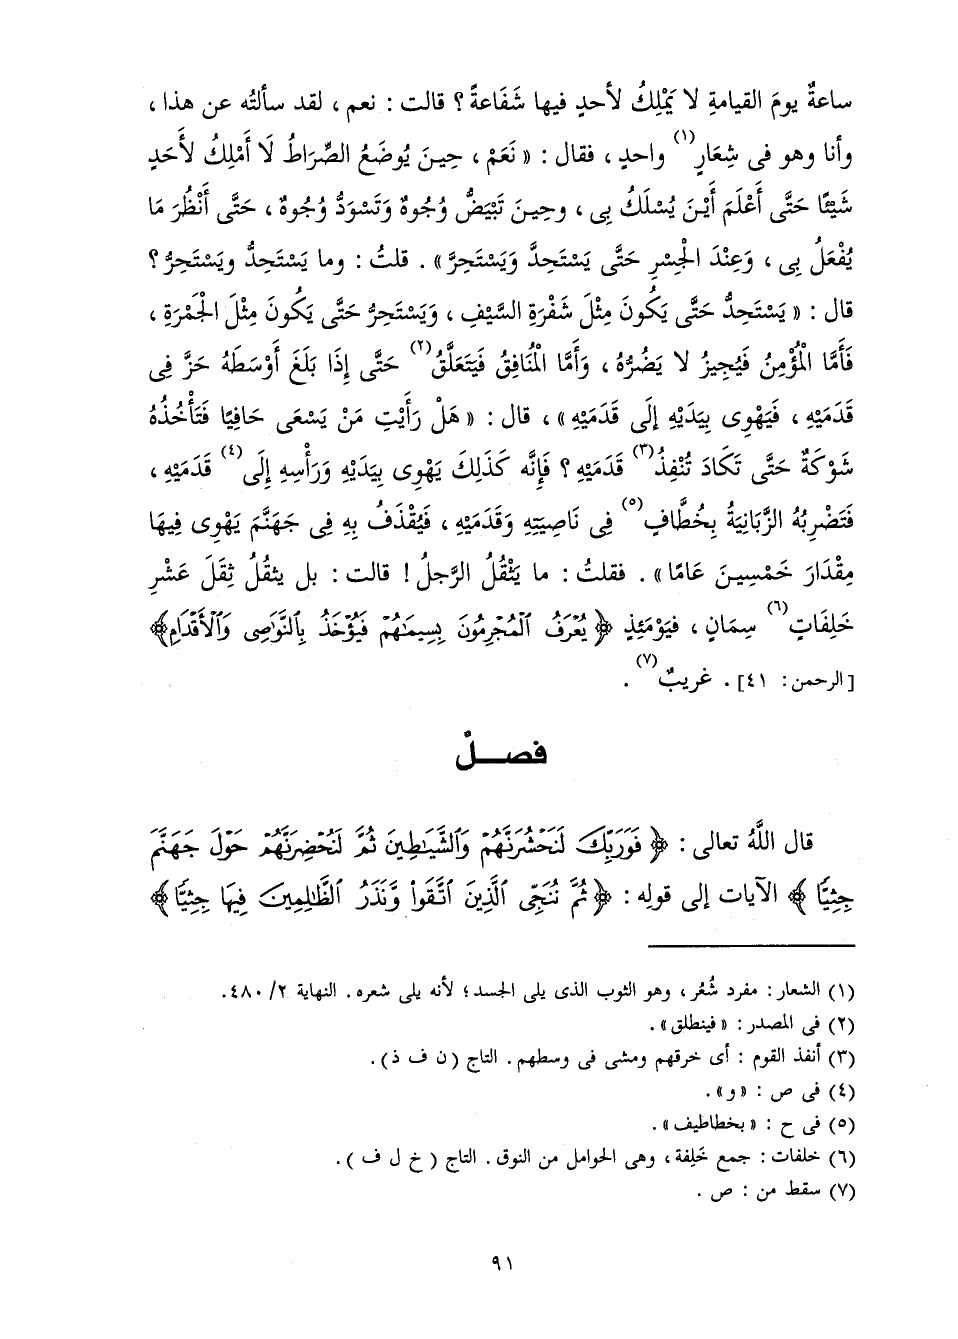 ساعةٌ يومَ القيامةِ لا يَمْلِكُ لأحدٍ فيها شَفَاعةً؟ قالت: نعم، لقد سألتُه عن هذا،
وأنا وهو فى شِعَارٍ(١) واحدٍ، فقال: «نَعَمْ، حِينَ يُوضَعُ الصِّرَاطُ لَا أَمْلِكُ لأَحَدٍ
شَيْئًا حَتَّى أَعْلَمَ أَيْنَ يُسْلَكُ بِى، وحِينَ تَبْيَضُّ وُجُوهٌ وَتَسْوَدُّ وُجُوهٌ، حَتَّى أَنْظُرَ مَا
يُفْعَلُ بِى، وَعِنْدَ الجْسِرِ حَتَّى يَسْتَحِدَّ وَيَسْتَحِرَّ». قلتُ: وما يَسْتَحِدُّ ويَسْتَحِرُّ؟
قال: «يَسْتَحِدُّ حَتَّى يَكُونَ مِثْلَ شَفْرَةِ السَّيْفِ، وَيَسْتَحِرُّ حَتَّى يَكُونَ مِثْلَ الجَمْرَةِ،
فَأَمَّا الْمُؤْمِنُ فَيُجِيزُ لا يَضُرُّهُ، وَأَمَّا الْمُنَافِقُ فَيَتَعَلَّقُ(٢) حَتَّى إِذَا بَلَغَ أَوْسَطَهُ حَزَّ فِى
قَدَمَيْهِ، فَيَهْوِى بِيَدَيْهِ إِلَى قَدَمَيْهِ»، قال: «هَلْ رَأَيْتِ مَنْ يَسْعَى حَافِيًا فَتَأْخُذُهُ
شَوْكَةٌ حَتَّى تَكَادَ تُنْفِذُ(٣) قَدَمَيْهِ؟ فَإِنَّه كَذَلِكَ يَهْوِى بِيَدَيْهِ وَرَأْسِهِ إِلَى(٤) قَدَمَيْهِ،
فَتَضْرِبُهُ الزَّبَانِيَةُ بِخُطَّافٍ(٥) فِى نَاصِيَتِهِ وَقَدَمَيْهِ، فَيُقْذَفُ بِهِ فِى جَهَنَّمَ يَهْوِى فِيهَا
مِقْدَارَ خَمْسِينَ عَامًا». فقلتُ: ما يَثْقُلُ الرَّجلُ! قالت: بل يثقُلُ ثِقَلَ عَشْرِ
خَلِفَاتٍ(٦) سِمَانٍ، فيَوْمَئِذٍ ﴿يُعْرَفُ ٱلْمُجْرِمُونَ بِسِيمَٰهُمْ فَيُؤْخَذُ بِٱلنَّوَٰصِى وَٱلْأَقْدَامِ﴾
[الرحمن: ٤١]. غريبٌ(٧).
فصـــلٌ
قال اللَّهُ تعالى: ﴿فَوَرَبِّكَ لَنَحْشُرَنَّهُمْ وَٱلشَّيَٰطِينَ ثُمَّ لَنُحْضِرَنَّهُمْ حَوْلَ جَهَنَّمَ
جِثِيًّا﴾ الآيات إلى قولِه: ﴿ثُمَّ نُنَجِّى ٱلَّذِينَ ٱتَّقَوا۟ وَّنَذَرُ ٱلظَّٰلِمِينَ فِيهَا جِثِيًّا﴾
(١) الشعار: مفرد شُعُر، وهو الثوب الذى يلى الجسد؛ لأنه يلى شعره. النهاية ٢/ ٤٨٠.
(٢) فى المصدر: «فينطلق».
(٣) أنفذ القوم: أى خرقهم ومشى فى وسطهم. التاج (ن ف ذ).
(٤) فى ص: «و».
(٥) فى ح: «بخطاطيف».
(٦) خلفات: جمع خَلِفة، وهى الحوامل من النوق. التاج (خ ل ف).
(٧) سقط من: ص.
٩١